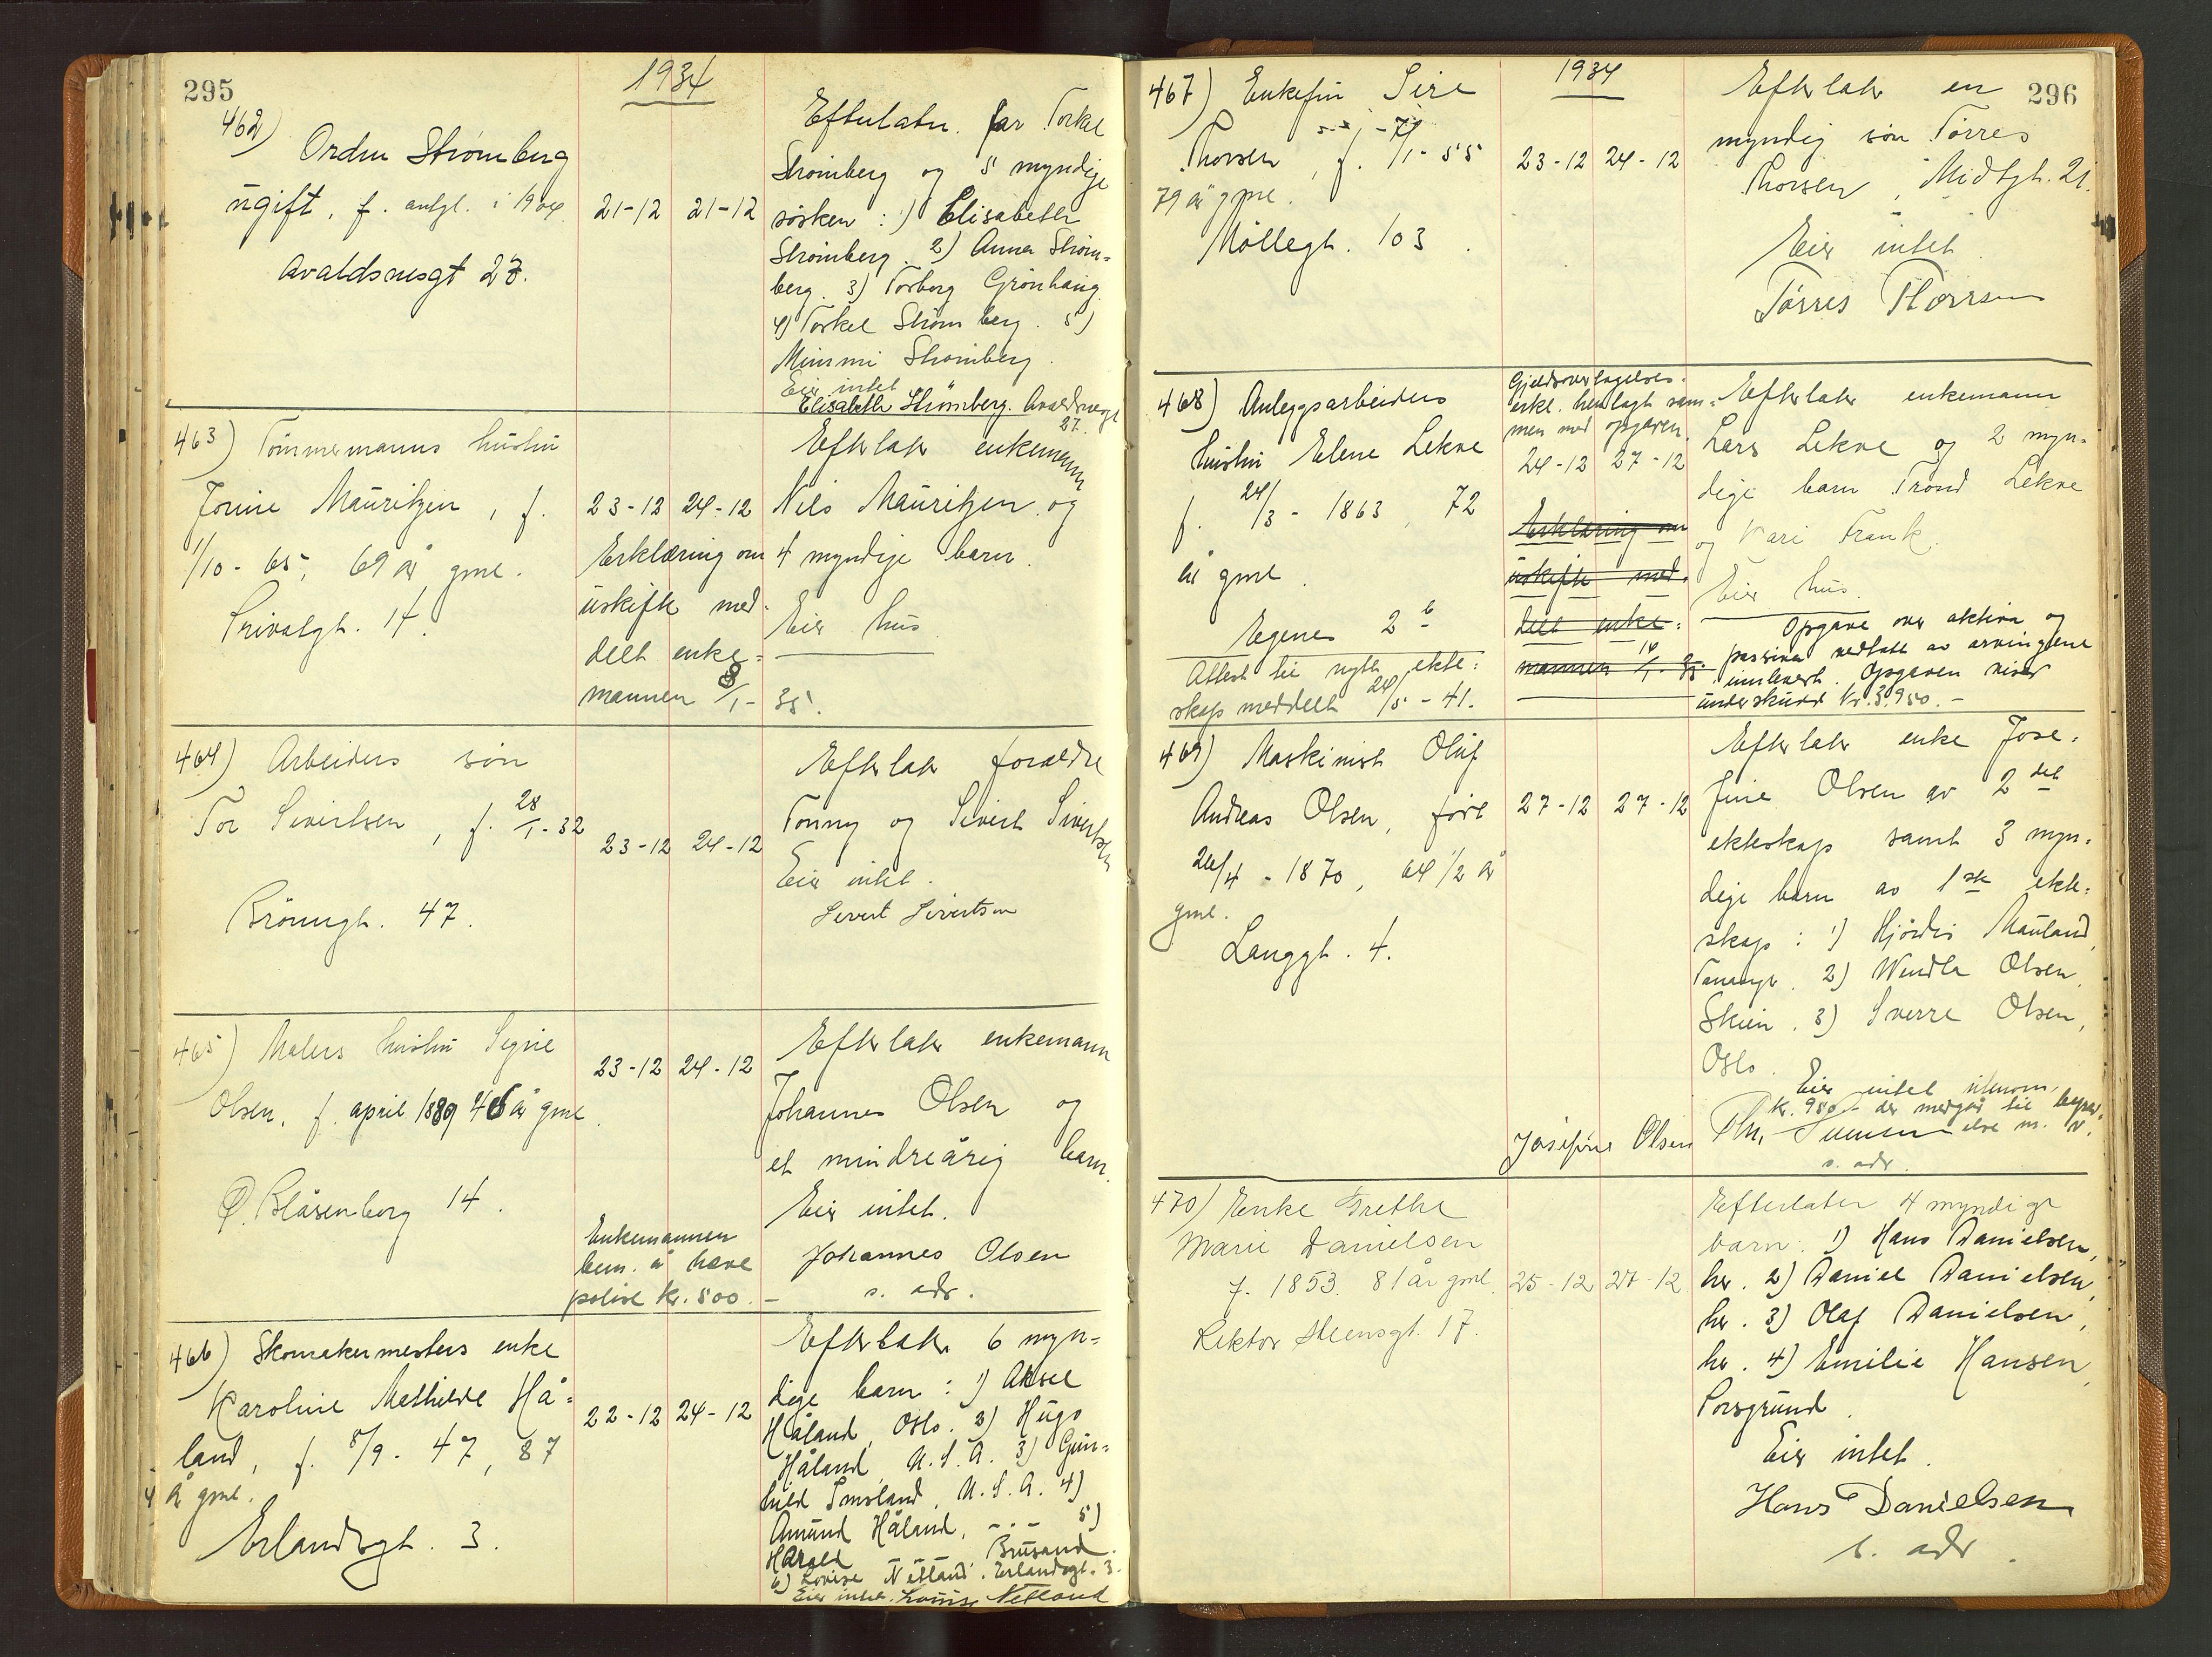 295
1934
462)
Ordin Strömberg
ugift, f. antgl. i 1904
Avaldsnesgt 27.
21-12 21-12
Efterlater far Torkel
Strömberg og 5 myndige
sösken: 1) Elisabeth
Strömberg. 2) Anna Ström-
berg. 3) Torborg Grönhaug
4) Torkel Strömberg. 5)
Mimmi Strömberg.
Eier intet
Elisabeth Strömberg. Avaldsnesgt
27.
463) Tömmermanns hustru
Jonine Mauritzen, f.
1/10 - 65, 69 år gml.
Privatgt. 14.
23-12 24-12
Erklæring om
uskifte med-
delt enke-
mannen 8/1 - 35.
Efterlater enkemann
Nils Mauritzen og
4 myndige barn.
Eier hus
464) Arbeiders sön
Tor Sivertsen, f. 28/1-32
Brönngt. 47.
23-12 24-12
Efterlater foreldre
Tonny og Sivert Sivertsen
Eier intet.
Sivert Sivertsen
465) Malers hustru Signe
Olsen, f. april 1889 46 år gml.
Ø. Blåsenborg 14.
23-12 24-12
Enkemannen
bem. å have
polise kr. 500.-
Efterlater enkemann
Johannes Olsen og
et mindreårig barn.
Eier intet.
Johannes Olsen
s. adr.
466) Skomakermesters enke
Karoline Mathilde Hå-
land, f. 8/9 - 47, 87
år gml.
Erlandsgt. 3.
22-12 24-12
Efterlater 6 myn-
dige barn: 1) Aksel
Håland, Oslo. 2) Hugo
Håland, U.S.A. 3) Gun-
hild Imsland, U.S.A. 4)
Amund Håland, - . - 5)
Harald Brusand.
6) Lovise Netland. Erlandsgt. 3.
Eier intet. Lovise Netland
296
1934
467) Enkefru Sire
Thorsen, f. 7/1 - 55
79 år gml.
Möllegt. 103.
23-12 24-12
Efterlater en
myndig sön Törres
Thorsen, Midtgt. 21.
Eier intet
Törres Thorsen
468) Anleggsarbeiders
hustru Elene Lekve
f. 24/3 - 1863, 72
år gml.
Egenes 2 b
Attest til nytt ekte-
skap meddelt 24/5 - 41.
Gjeldsovertagelses-
erkl. henlagt sam-
men med opgaven.
24-12 27-12
Erklæring om
uskifte med-
delt enke-
mannen
Efterlater enkemann
Lars Lekve og 2 myn-
dige barn Trond Lekve
og Kari Frank.
Eier hus.
Opgave over aktiva og
passiva vedtatt av arvingene
innlevert. Opgaven viser
underskudd kr. 3.950.-
469) Maskinist Oluf
Andreas Olsen, född
24/4 - 1870, 64 1/2 år
gml.
Langgt. 4.
27-12 27-12
Efterlater enke Jose-
fine Olsen av 2 det
ekteskap samt 3 myn-
dige barn av 1 ste ekte-
skap: 1) Hjördis Mauland,
Tanangr. 2) Wendla Olsen,
Skien. 3) Sverre Olsen,
Oslo.
Eier intet utenom
kr. 980.- der medgår til begrav-
else m. v.
Josefine Olsen
s. adr.
470) Enke Grethe
Marie Danielsen
f. 1853. 81 år gml.
Rektor Steensgt. 17.
25-12 27-12
Efterlater 4 myndige
barn: 1) Hans Danielsen,
her. 2) Daniel Danielsen,
her. 3) Olaf Danielsen,
her. 4) Emilie Hansen,
Porsgrund.
Eier intet.
Hans Danielsen
s. adr.